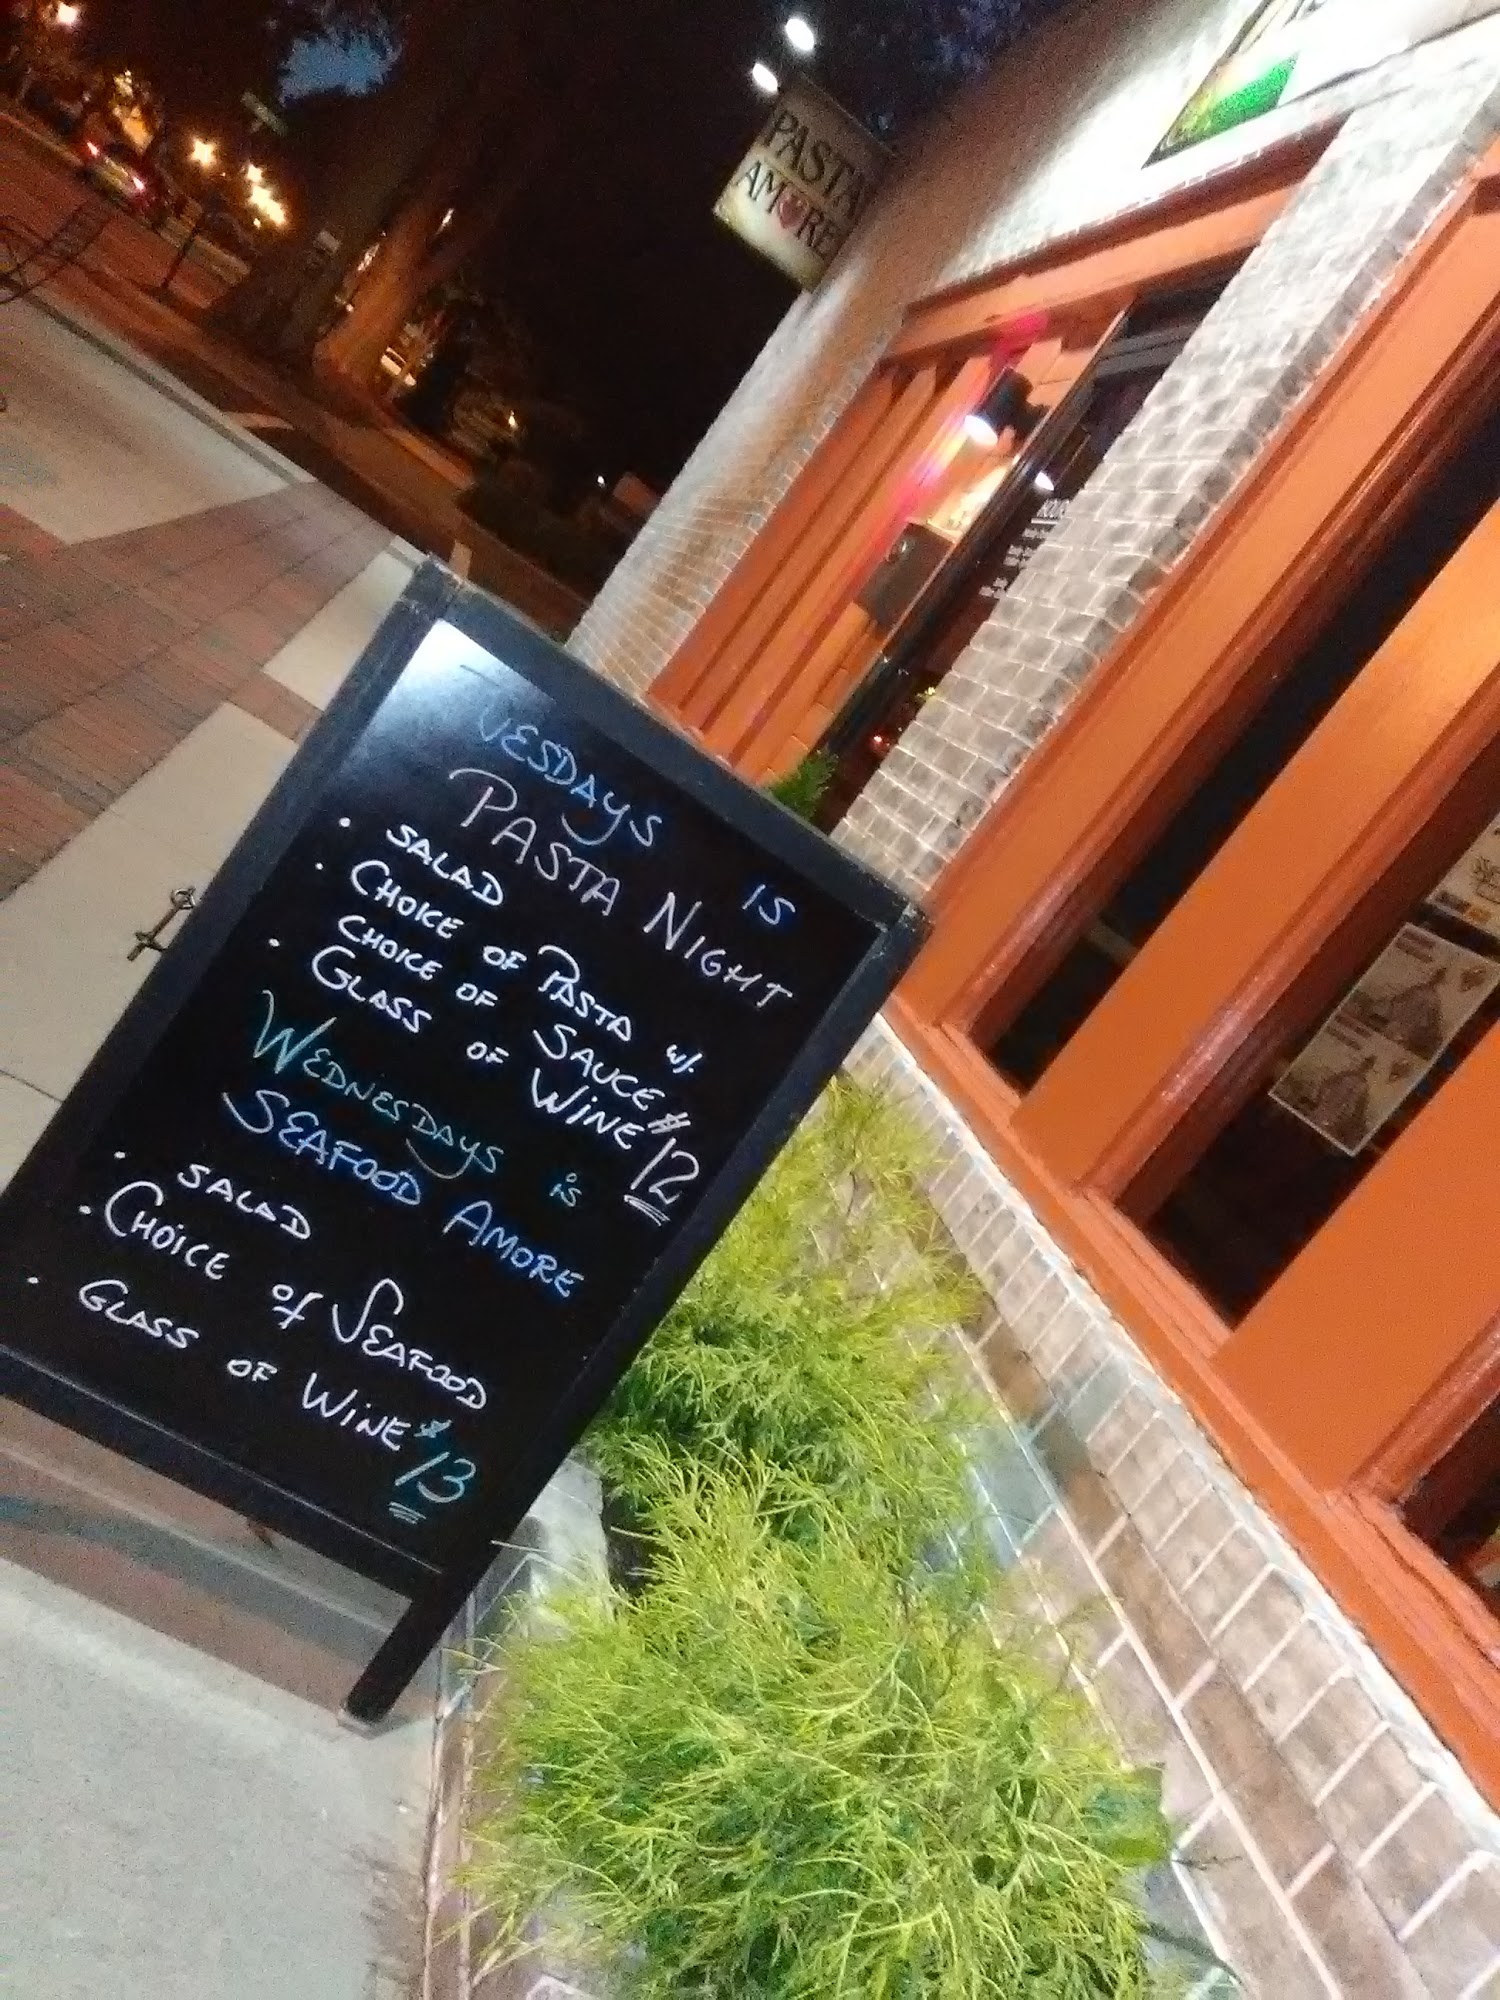 PASTA
AMORE
UESDAYS IS
PASTA NIGHT
• SALAD
• CHOICE OF PASTA w/.
CHOICE OF SAUCE
• GLASS OF WINE $12
WEDNESDAYS is
SEAFOOD AMORE
• SALAD
• CHOICE of SEAFOOD
• GLASS OF WINE $13